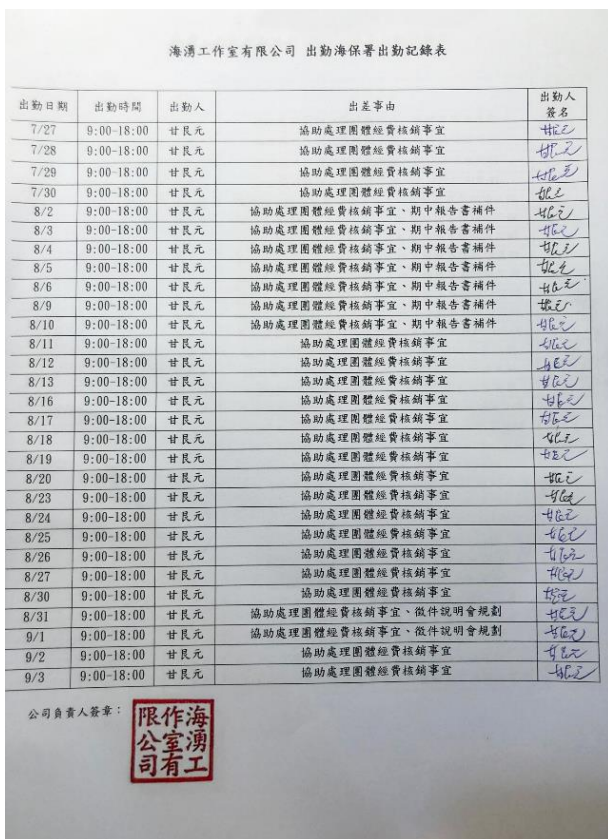 海湧工作室有限公司 出勤海保署出勤記錄表
出勤日期 出勤時間 出勤人 出差事由 出勤人簽名
7/27 9:00-18:00 甘艮元 協助處理團體經費核銷事宜 甘艮元
7/28 9:00-18:00 甘艮元 協助處理團體經費核銷事宜 甘艮元
7/29 9:00-18:00 甘艮元 協助處理團體經費核銷事宜 甘艮元
7/30 9:00-18:00 甘艮元 協助處理團體經費核銷事宜 甘艮元
8/2 9:00-18:00 甘艮元 協助處理團體經費核銷事宜、期中報告書補件 甘艮元
8/3 9:00-18:00 甘艮元 協助處理團體經費核銷事宜、期中報告書補件 甘艮元
8/4 9:00-18:00 甘艮元 協助處理團體經費核銷事宜、期中報告書補件 甘艮元
8/5 9:00-18:00 甘艮元 協助處理團體經費核銷事宜、期中報告書補件 甘艮元
8/6 9:00-18:00 甘艮元 協助處理團體經費核銷事宜、期中報告書補件 甘艮元
8/9 9:00-18:00 甘艮元 協助處理團體經費核銷事宜、期中報告書補件 甘艮元
8/10 9:00-18:00 甘艮元 協助處理團體經費核銷事宜、期中報告書補件 甘艮元
8/11 9:00-18:00 甘艮元 協助處理團體經費核銷事宜 甘艮元
8/12 9:00-18:00 甘艮元 協助處理團體經費核銷事宜 甘艮元
8/13 9:00-18:00 甘艮元 協助處理團體經費核銷事宜 甘艮元
8/16 9:00-18:00 甘艮元 協助處理團體經費核銷事宜 甘艮元
8/17 9:00-18:00 甘艮元 協助處理團體經費核銷事宜 甘艮元
8/18 9:00-18:00 甘艮元 協助處理團體經費核銷事宜 甘艮元
8/19 9:00-18:00 甘艮元 協助處理團體經費核銷事宜 甘艮元
8/20 9:00-18:00 甘艮元 協助處理團體經費核銷事宜 甘艮元
8/23 9:00-18:00 甘艮元 協助處理團體經費核銷事宜 甘艮元
8/24 9:00-18:00 甘艮元 協助處理團體經費核銷事宜 甘艮元
8/25 9:00-18:00 甘艮元 協助處理團體經費核銷事宜 甘艮元
8/26 9:00-18:00 甘艮元 協助處理團體經費核銷事宜 甘艮元
8/27 9:00-18:00 甘艮元 協助處理團體經費核銷事宜 甘艮元
8/30 9:00-18:00 甘艮元 協助處理團體經費核銷事宜 甘艮元
8/31 9:00-18:00 甘艮元 協助處理團體經費核銷事宜、徵件說明會規劃 甘艮元
9/1 9:00-18:00 甘艮元 協助處理團體經費核銷事宜、徵件說明會規劃 甘艮元
9/2 9:00-18:00 甘艮元 協助處理團體經費核銷事宜 甘艮元
9/3 9:00-18:00 甘艮元 協助處理團體經費核銷事宜 甘艮元
公司負責人簽章：
海湧工
作室有
限公司